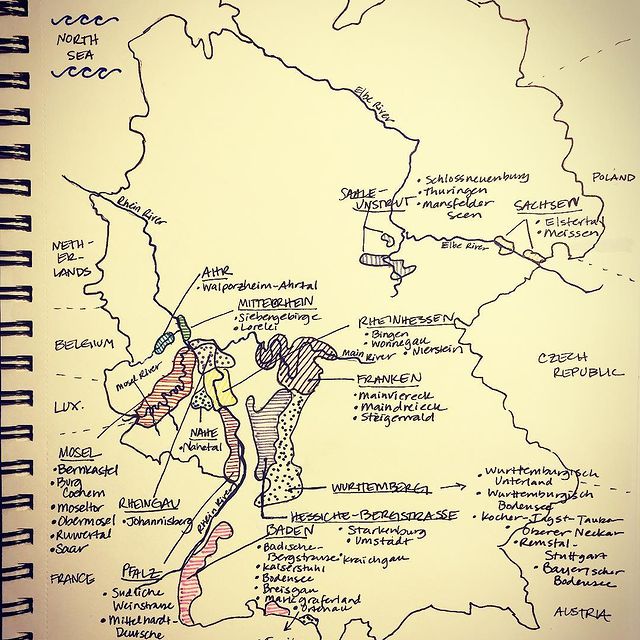 NORTH
SEA
Elbe River
POLAND
Rhein River
SAALE-
UNSTRUT
• Schlossneuenburg
• Thuringen
• Mansfelder
Seen
SACHSEN
• Elstertal
• Meissen
Elbe River
NETH-
ER-
LANDS
AHR
• Walporzheim-Ahrtal
MITTELRHEIN
• Siebengebirge
• Lorelei
RHEINHESSEN
• Bingen
• Wonnegau
• Nierstein
Main River
BELGIUM
Mosel River
LUX.
CZECH
REPUBLIC
FRANKEN
• Mainviereck
• Maindreieck
• Steigerwald
NAHE
• Nahetal
MOSEL
• Bernkastel
• Burg
Cochem
• Moseltor
• Obermosel
• Ruwertal
• Saar
RHEINGAU
• Johannisberg
Rhein River
WURTTEMBERG
• Wurttembergisch
Unterland
• Wurttembergisch
Bodensee
• Kocher-Jagst-Tauber
• Oberer Neckar
• Remstal-
Stuttgart
• Bayerischer
Bodensee
HESSICHE-BERGSTRASSE
• Starkenburg
• Umstadt
BADEN
• Badische-
Bergstrasse
• Kraichgau
• Kaiserstuhl
• Bodensee
• Breisgau
• Markgraferland
• Ortenau
FRANCE
PFALZ
• Sudliche
Weinstrasse
• Mittelhardt-
Deutsche
AUSTRIA